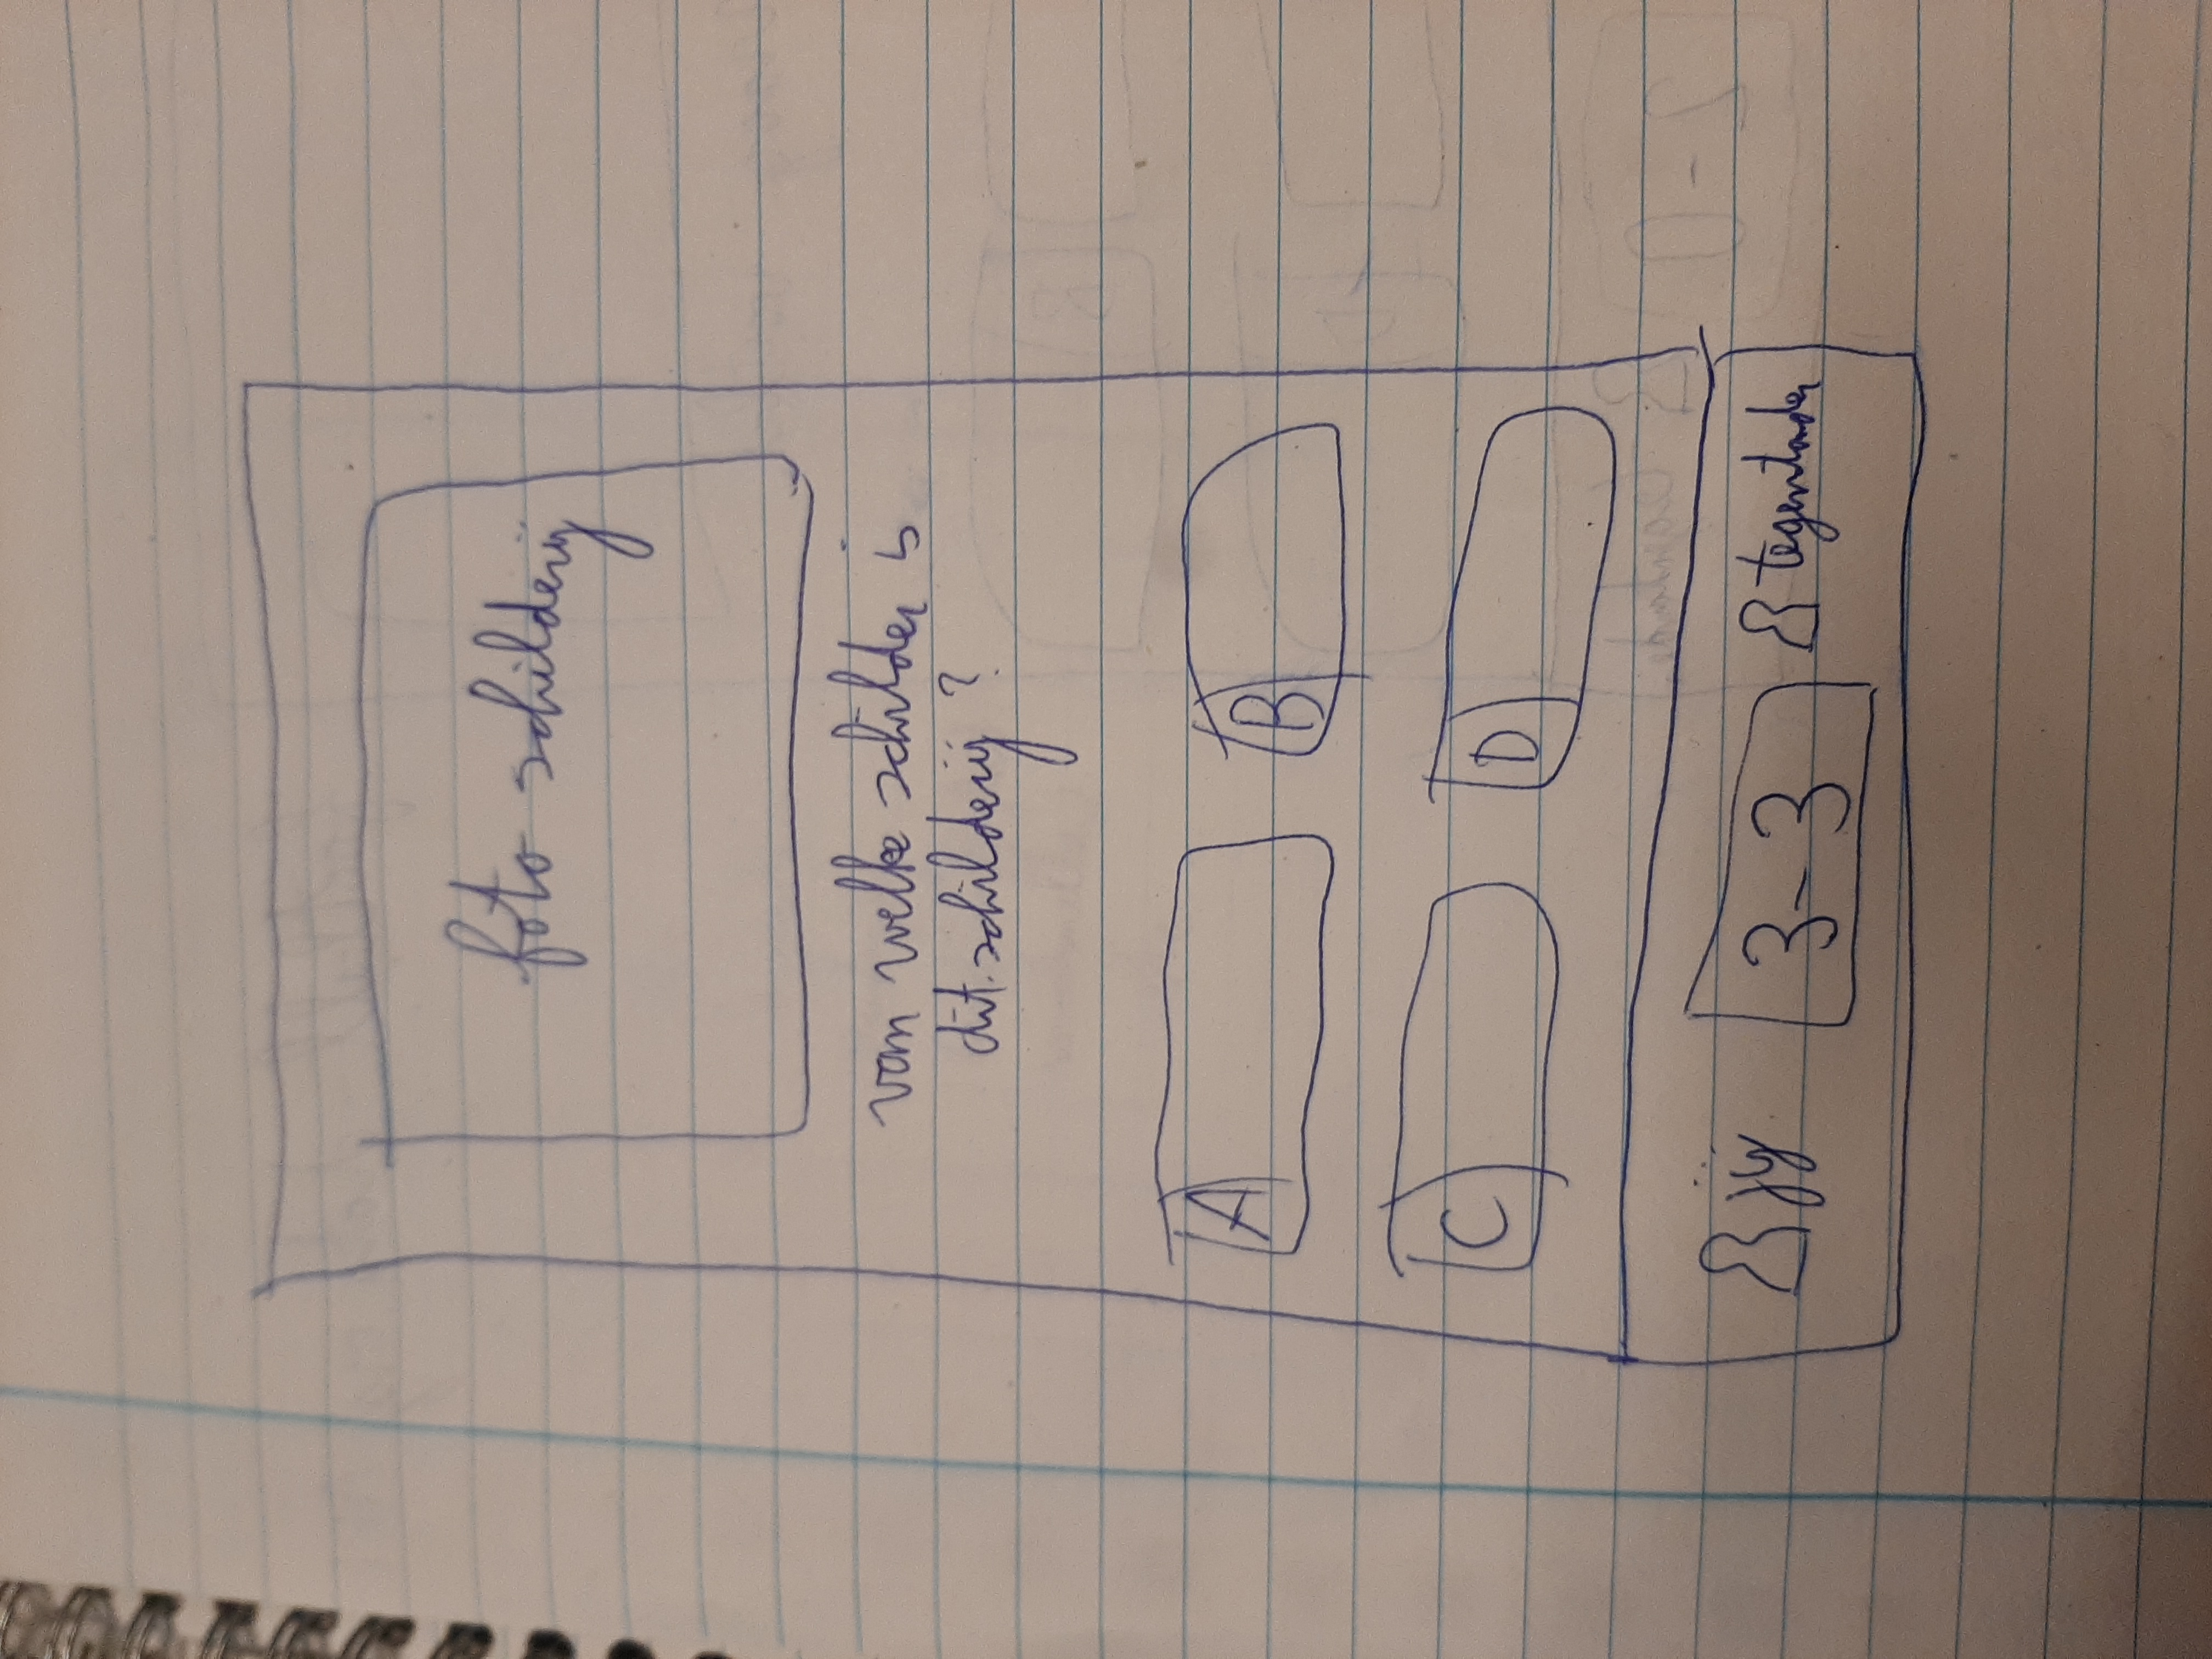 foto schilderij
van welke schilder is
dit schilderij ?
A
B
C
D
jij
3-3
tegenstander